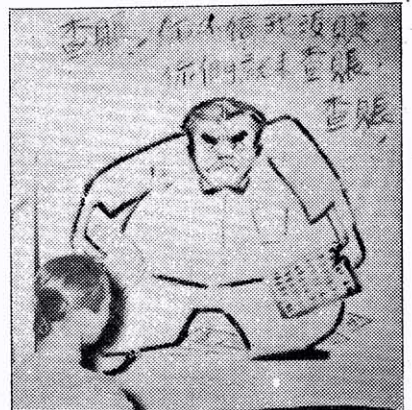 查賬，你不信我沒賬，
你們就來查賬，
查賬，